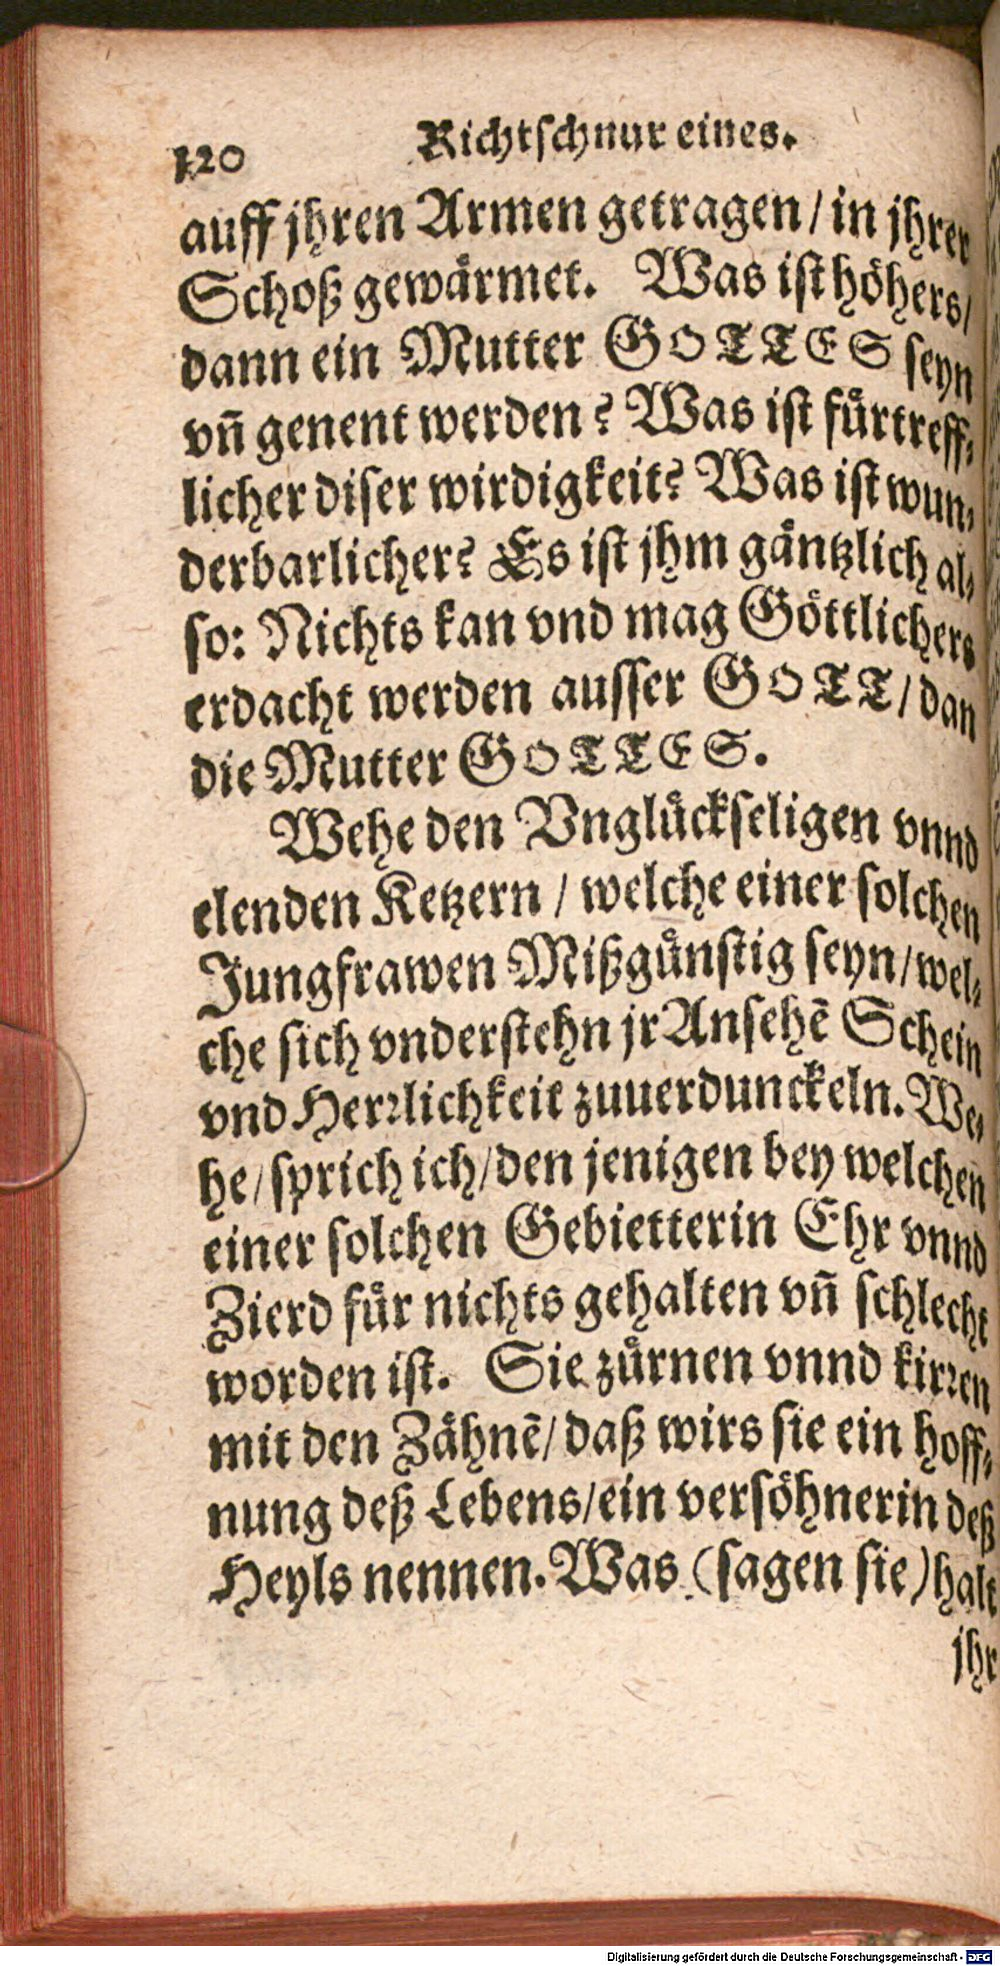 120 Richtschnur eines.
auff jhren Armen getragen / in jhrer
Schoß gewaͤrmet. Was ist hoͤhers /
dann ein Mutter GOTTES seyn
vñ genent werden? Was ist fuͤrtreff-
licher diser wirdigkeit? Was ist wun-
derbarlicher? Es ist jhm gaͤntzlich al-
so: Nichts kan vnd mag Goͤttlichers
erdacht werden ausser GOTT / dan
die Mutter GOTTES.
Wehe den Vngluͤckseligen vnnd
elenden Ketzern / welche einer solchen
Jungfrawen Mißguͤnstig seyn / wel-
che sich vnderstehn jr Ansehẽ Schein
vnd Herꝛlichkeit zuuerdunckeln. We-
he / sprich ich / den jenigen bey welchen
einer solchen Gebietterin Ehr vnnd
Zierd fuͤr nichts gehalten vñ schlecht
worden ist. Sie zuͤrnen vnnd kirꝛen
mit den Zaͤhnẽ / daß wirs sie ein hoff-
nung deß Lebens / ein versoͤhnerin deß
Heyls nennen. Was (sagen sie) halt
jhr
Digitalisierung gefördert durch die Deutsche Forschungsgemeinschaft - DFG